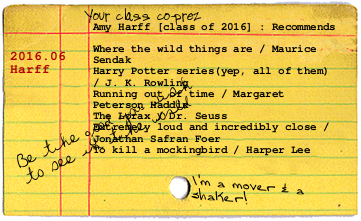 Your class co-prez
Amy Harff [class of 2016] : Recommends
2016.06
Harff
Where the wild things are / Maurice
Sendak
Harry Potter series(yep, all of them)
/ J. K. Rowling
Running out of time / Margaret
Peterson Haddix
The Lorax / Dr. Seuss
Extremely loud and incredibly close /
Jonathan Safran Foer
To kill a mockingbird / Harper Lee
Be the
to see in
I'm a mover & a
shaker!